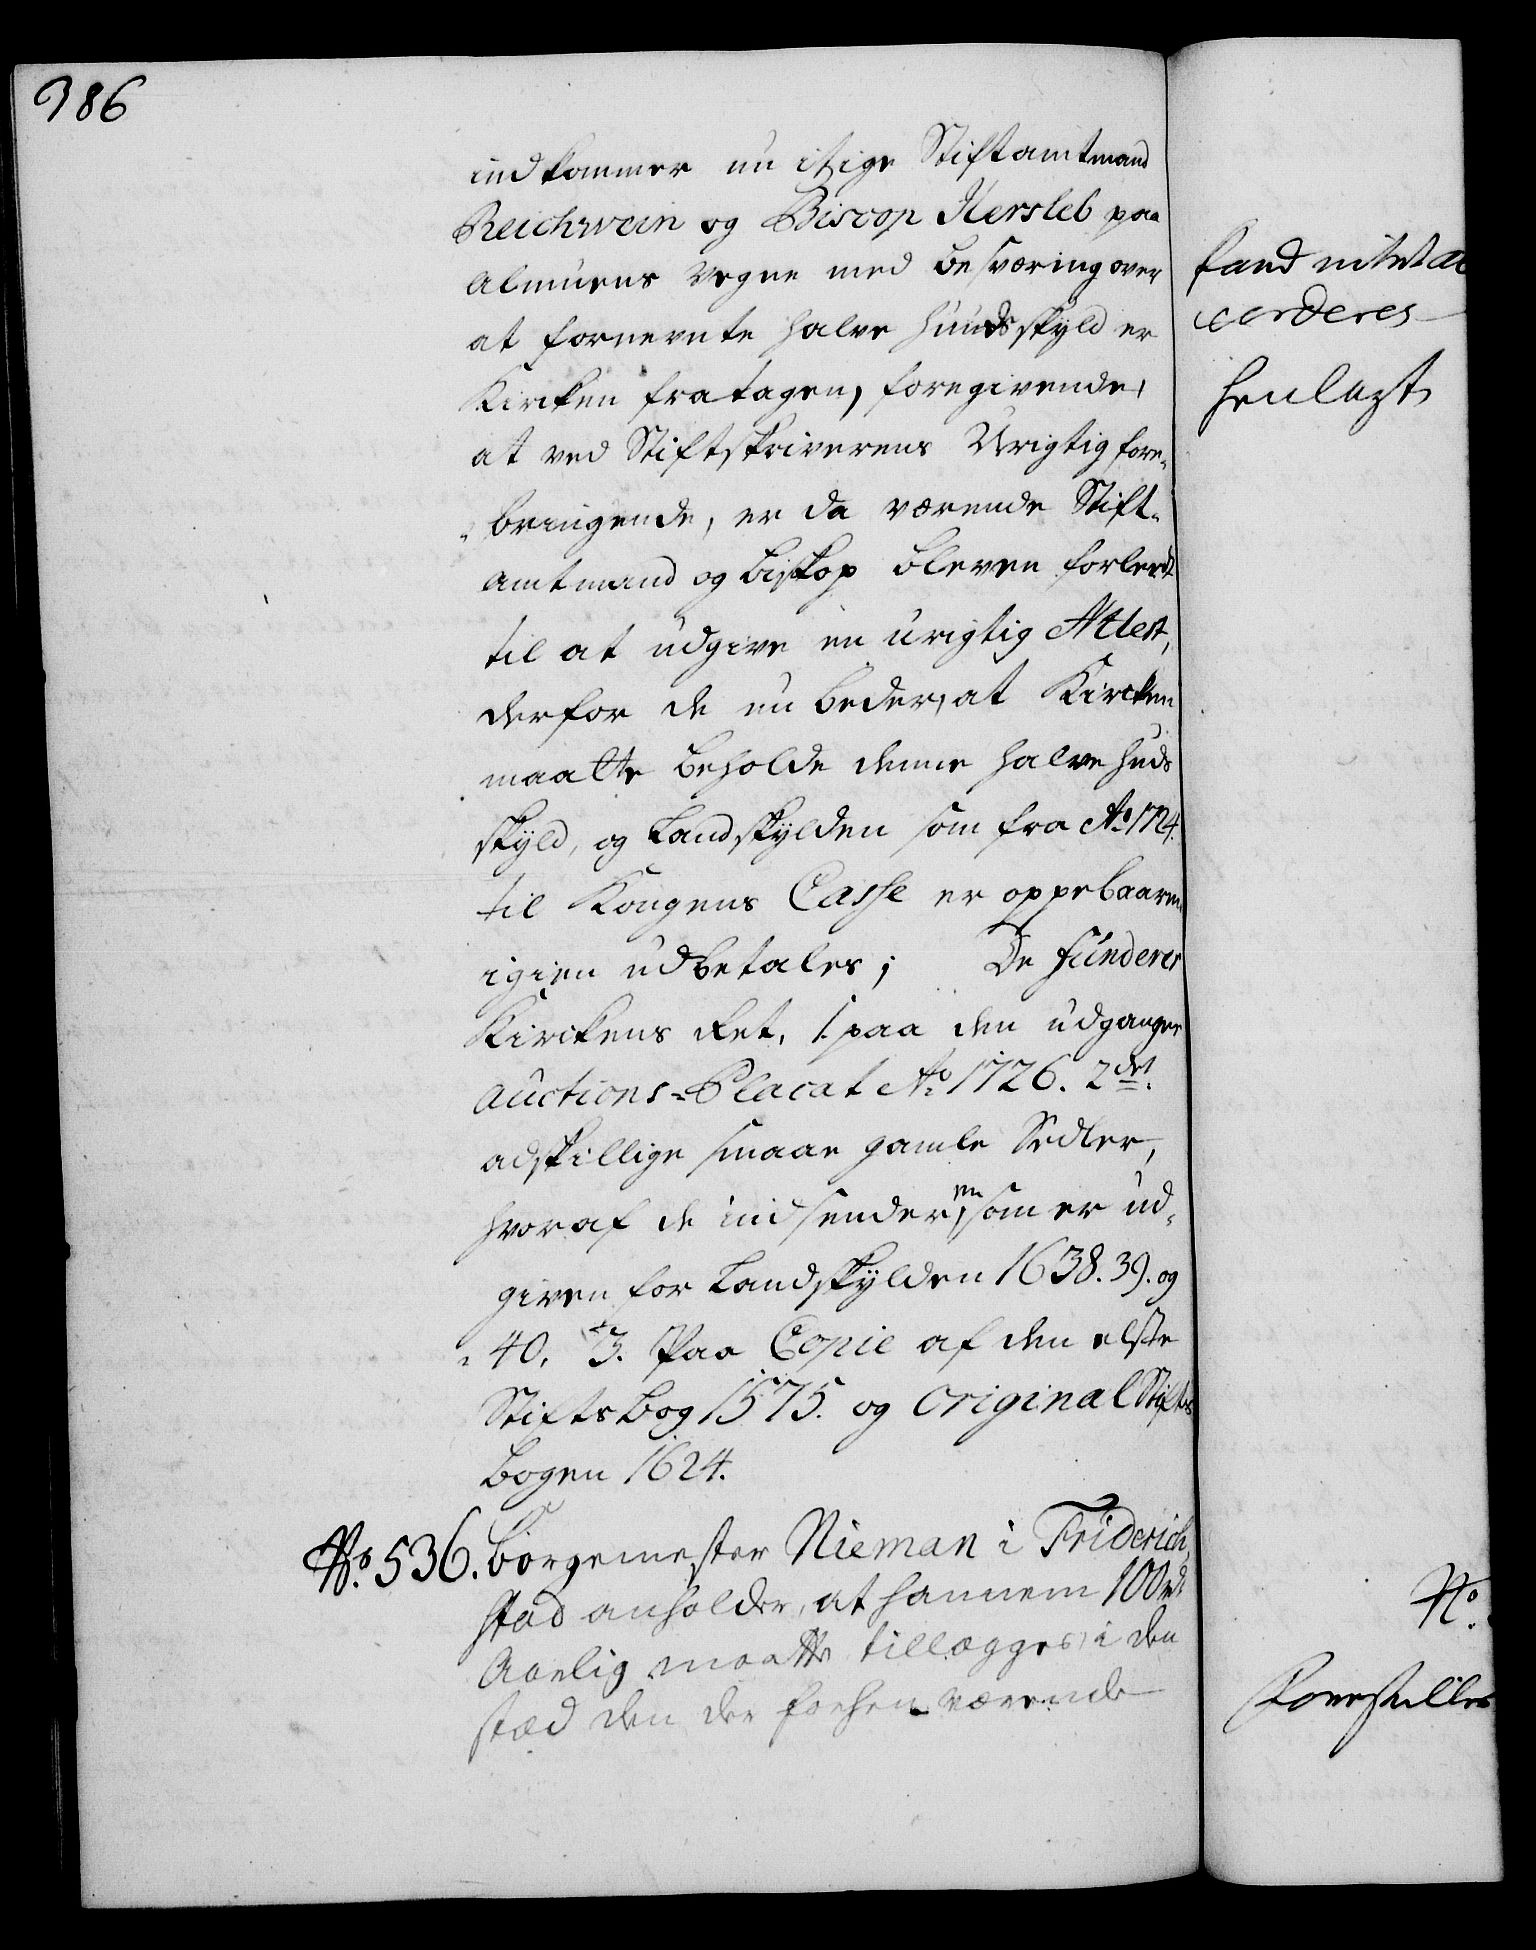 386
indkommer nu itzige Stiftamtmand
Reichwein og Biscop Hersleb paa
Almuens Vegne med Besværing over
at fornevnte halve Huudskyld er
Kircken fratagen, foregivende,
at ved Stiftskriverens Urigtig fore-
bringende, er da værende Stift-
amtmand og Biskop bleven forledt
til at udgive en urigtig Attest,
derfor de nu beder, at Kircken
maatte beholde denne halve Huds
skyld, og Landskylden som fra Ao. 1724.
til Kongens Casse er oppebaaren
igien udbetales; De funderer
Kirckens Ret, 1. paa den udgangne
Auctions-Placat Ao. 1726. 2det.
adskillige smaae gamle Sedler,
hvoraf de indsender en, som er ud-
given for Landskylden 1638. 39. og
40. 3. Paa Copie af den elste
Stiftsbog 1575. og Original Stifts
bogen 1624.
No. 536. Borgemester Nieman i Friderich-
stad anholder, at hannem 100 rdr
Aarlig maatte tillægges, i den
stæd den der forhen værende
fand intet at
corderes
henlagt
No.
Forestilles